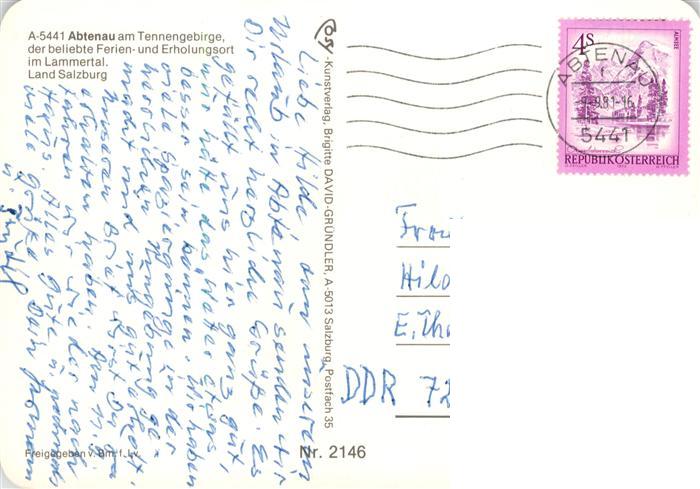 A-5441 Abtenau am Tennengebirge,
der beliebte Ferien- und Erholungsort
im Lammertal.
Land Salzburg
Liebe Hilde, aus unserem
Urlaub in Abtenau senden wir
Dir recht herzliche Grüße. Es
gefällt uns hier ganz gut,
nur hätte das Wetter etwas
besser sein können. Wir haben
viele Spaziergänge in der
herrlichen Umgebung ge-
macht und uns gut erholt.
Unseren Brief wirst Du
erhalten haben. Am
fahren wir wieder nach
Haus. Alles Gute u.
viele Grüße Dein
u.
Freigegeben v. Bm. f. I. v.
-Kunstverlag, Brigitte DAVID-GRÜNDLER, A-5013 Salzburg, Postfach 35
Nr. 2146
4S
ALMSEE
REPUBLIK ÖSTERREICH
ABTENAU
5441
Frau
Hild
E.Th
DDR 72